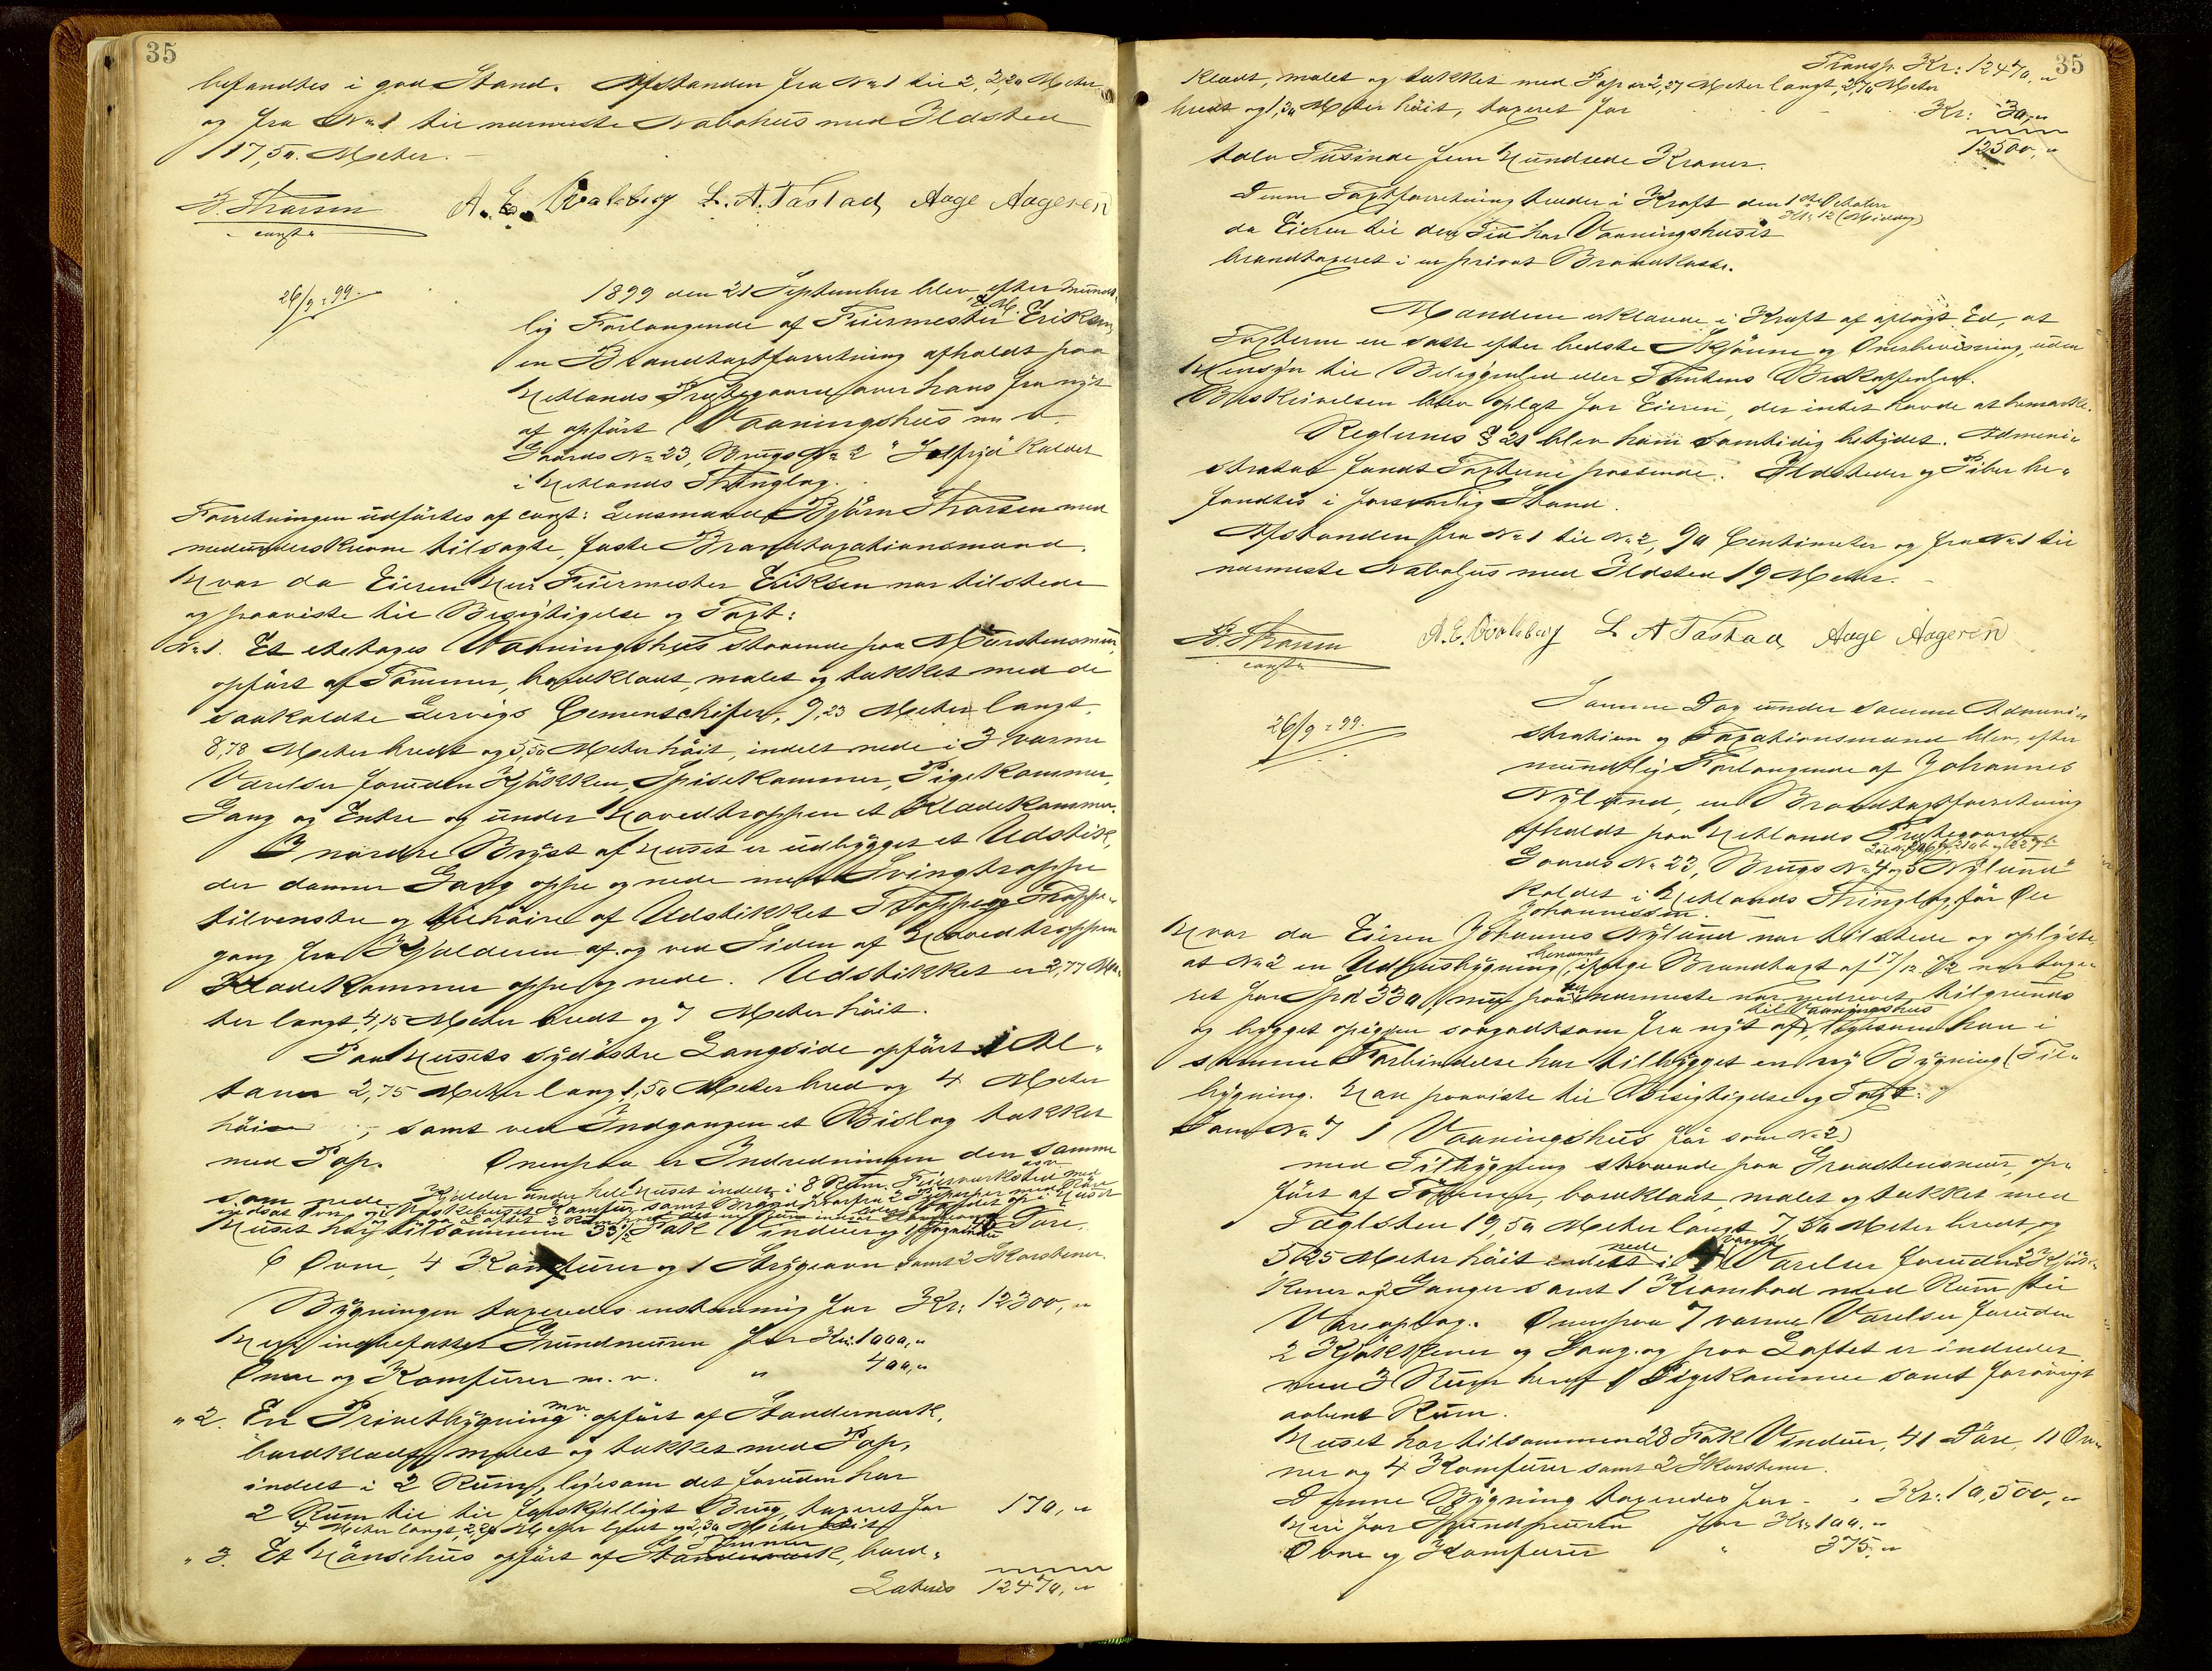 35
befandtes i god Stand. Afstanden fra No 1 til 2, 2,20 Meter
og fra No 1 til nærmeste Nabohus med Ildsted
117,50. Meter.
B. Tharsen A. E. Vaaleberg L. A. Tastad, Aage Aageson
const.
26/9-99.
1899 den 21 September blev, efter mundt-
lig Forlangende af Fuirmester E. M. Eriksen
en Brandtaxtforretning afholdt paa
Hetlands Præstegaard over hans fra nyt
af opført Vaaningshus m. v.
Gaards No 23, Brugs No 2 "Solfryd" kaldet
i Hetlands Thinglag.
Forretningen udførtes af const: Lensmand Bjørn Tharsen med
medunderskrevne tilsagte, faste Brandtaxationsmænd.
Hvor da Eieren Herr Fuirmester Eriksen var tilstede
og paaviste til Besigtigelse og Taxt:
No 1. Et etetages Vaaningshus staaende paa Murstensmur,
opført af Tømmer, bordklædt, malet og tækket med de
saakaldte Lervigs Cementschifer, 9,23 Meter langt,
8,78 Meter bredt og 5,50 Meter høit, indelt nede i 3 varme
Værelser foruden Kjøkken, Spisekammer, Pigekammer,
Gang og Entre og under Hovedtrappen et Klædekammer.
I nordre Bryst af Huset er udbygget et Udstik,
der danner Gang oppe og nede med Svingtrappe
tilvenstre og tilhøire af Udstikket Trappe og Trappe-
gang fra Kjelderen af og ved Siden af Hovedtrappen
Klædekammer oppe og nede. Udstikket er 2,77 Me-
ter langt, 4,15 Meter bredt og 7 Meter høit.
Paa Husets sydøstre Langside opført 1 Al-
tane 2,75 Meter lang 1,50 Meter bred og 4 Meter
høi, samt ved Indgangen et Bislag tækket
med Pap. Ovenpaa er Indredningen den samme
som nede. Kjelder under hele Huset indelt i 8 Rum.
Huset har tilsammen 33 1/2 Fak Vinduer Døre,
6 Ovne, 4 Komfurer og 1 Strygeovn samt 2 Skorstener.
Bygningen taxeredes enstemmig for Kr: 12300,"
Heri indbefattet Grundmuren for Kr: 1000,"
Ovne og Komfurer m. v. " 400,"
" 2. En Privetbygning m.v. opført af Standerværk,
bordklædt, malet og tækket med Pap,
indelt i 2 Rum, ligesom det foruden har
2 Rum til til forskjelligt Brug, taxeret for 170,"
4 Meter langt, 2,20 Meter bredt og 2,30 Meter høit
" 3. Et Hønsehus opført af Standerværk, bord-
af Tømmer
Lateris 12470,"
35
Transp. Kr: 12470,"
klædt, malet og tækket med Pap er 2,27 Meter langt, 2,70 Meter
bredt og 1,30 Meter høit, taxeret for Kr: 30,"
12500,"
tolv Tusinde fem Hundrede Kroner.
Denne Taxtforretning træder i Kraft den 1ste Oktober
Kl. 12 (Middag)
da Eieren til den Tid har Vaaningshuset
brandtaxeret i en privat Brandkasse.
Mændene erklærede i Kraft af aflagt Ed, at
Taxterne er satte efter bedste Skjønne og Overbevisning, uden
Hensyn til Beliggenhed eller Tomtens Beskaffenhed.
Beskrivelsen blev oplæst for Eieren, der intet havde at bemærke.
Reglernes § 21 blev ham samtidig betydet. Admini-
strator fandt Taxterne passende. Ildsteder og Piber be-
fandtes i forsvarlig Stand.
Afstanden fra No 1 til No 2, 90 Centimeter og fra No 1 til
nærmeste Nabohus med Ildsted 19 Meter.
B. Tharsen A. E. Vaaleberg L. A. Tastad, Aage Aageson
const.
26/9-99.
Samme Dag under samme Admini-
stration og Taxationsmænd blev, efter
mundtlig Forlangende af Johannes
Nylund, en Brandtaxtforretning
afholdt paa Hetlands Præstegaard
Gaards No 23, Brugs No 4 og 5 "Nylund"
kaldet i Hetlands Thinglag, før Ole
Johannessen.
Hvor da Eieren Johannes Nylund var tilstede og oplyste
at No 2 en Udhusbygning benævnt, ifølge Brandtaxt af 17/12 72 var taxe-
ret for Spd 330, nu paa det nærmeste var nedrevet tilgrunds
og bygget opigjen saagodtsom fra nyt af til Vaaningshus, ligesom han i
samme Forbindelse har tilbygget en ny Bygning (Til-
bygning. Han paaviste til Besigtigelse og Taxt:
Som No 7 1 Vaaningshus før som No 2)
med Tilbygning staaende paa Graastensmur, op-
ført af Tømmer, bordklædt, malet og tækket med
Taglsten 19,50 Meter langt 7,50 Meter bredt og
5,25 Meter høit indelt nede i 4 varme Værelser foruden 2 Kjøk-
kener og 2 Ganger samt 1 Krambod med Rum til
Vareoplag. Ovenpaa 7 varme Værelser foruden
2 Kjøkkener og Gang og paa Loftet er indredet
med 3 Rum heraf 1 Pigekammer samt forøvrigt
aabent Rum.
Huset har tilsammen 28 Fak Vinduer, 41 Døre, 11 Ov-
ner og 4 Komfurer samt 2 Skorstener.
Denne Bygning taxeredes for - " Kr: 10,500,"
Heri for Grundmuren for Kr: 100,"
Ovne og Komfurer " 375,"